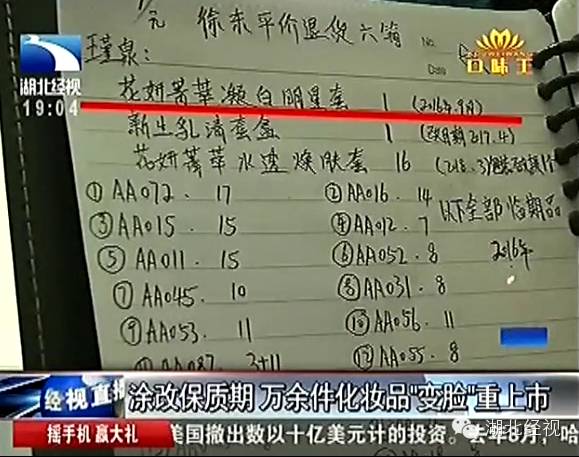 湖北经视
19:04
口味王
No.
Date
元 徐东平价退货六箱
王瑾泉：
花妍菁华凝白明星套 1 (2016年9月)
新生乳清套盒 1 (改日期2017.4)
花妍菁华水透焕肤套 16
① AA072. 17 ② AA016. 14
以下全部临期品
③ AA015. 15 ④ AA012. 7
2016年
⑤ AA011. 15 ⑥ AA052. 8
⑦ AA045. 10 ⑧ AA031. 8
⑨ AA053. 11 ⑩ AA056. 11
⑪ AA087 3+11 ⑫ AA055. 8
经视直播
涂改保质期 万余件化妆品"变脸"重上市
摇手机 赢大礼
美国撤出数以十亿美元计的投资。去年8月，哈
湖北经视